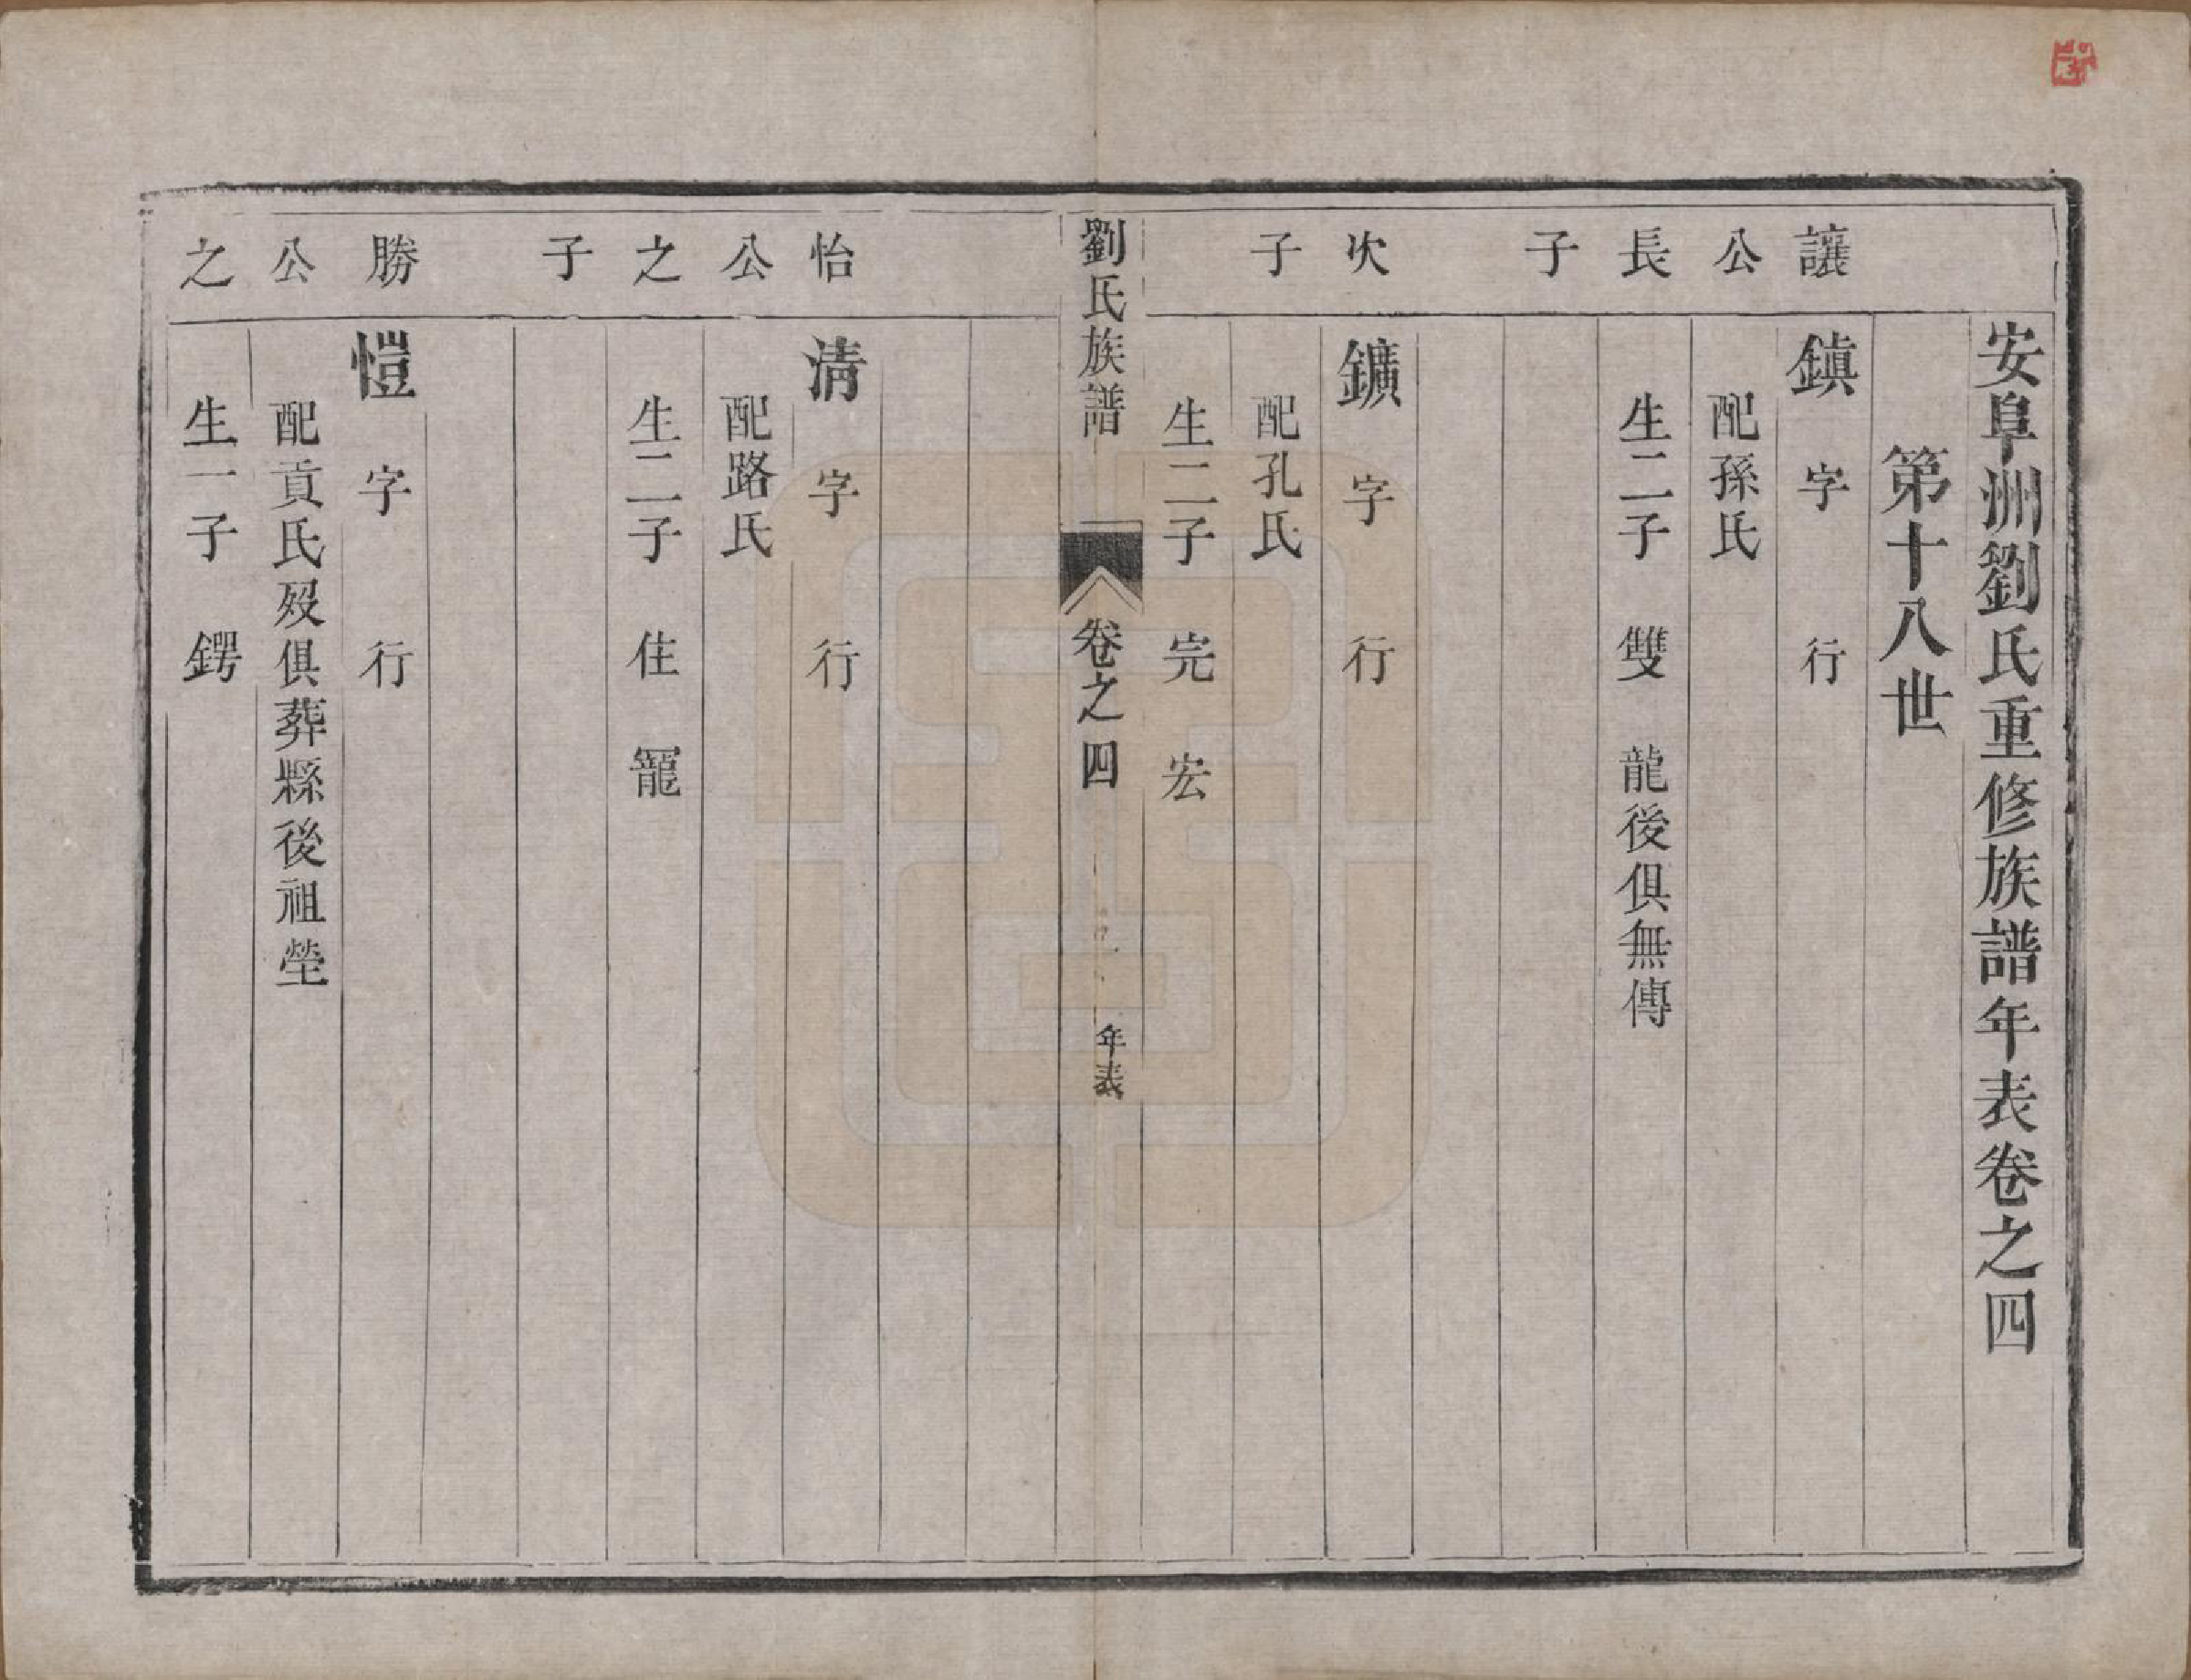 安阜洲劉氏重修族譜年表卷之四
第十八世
讓公長子
鎮 字 行
配孫氏
生二子 雙 龍後俱無傳
次子
鑛 字 行
配孔氏
生二子 完 宏
劉氏族譜 卷之四 年表
怡公之子
清 字 行
配路氏
生二子 住 寵
勝公之
愷 字 行
配貢氏歿俱葬縣後祖塋
生一子 鍔